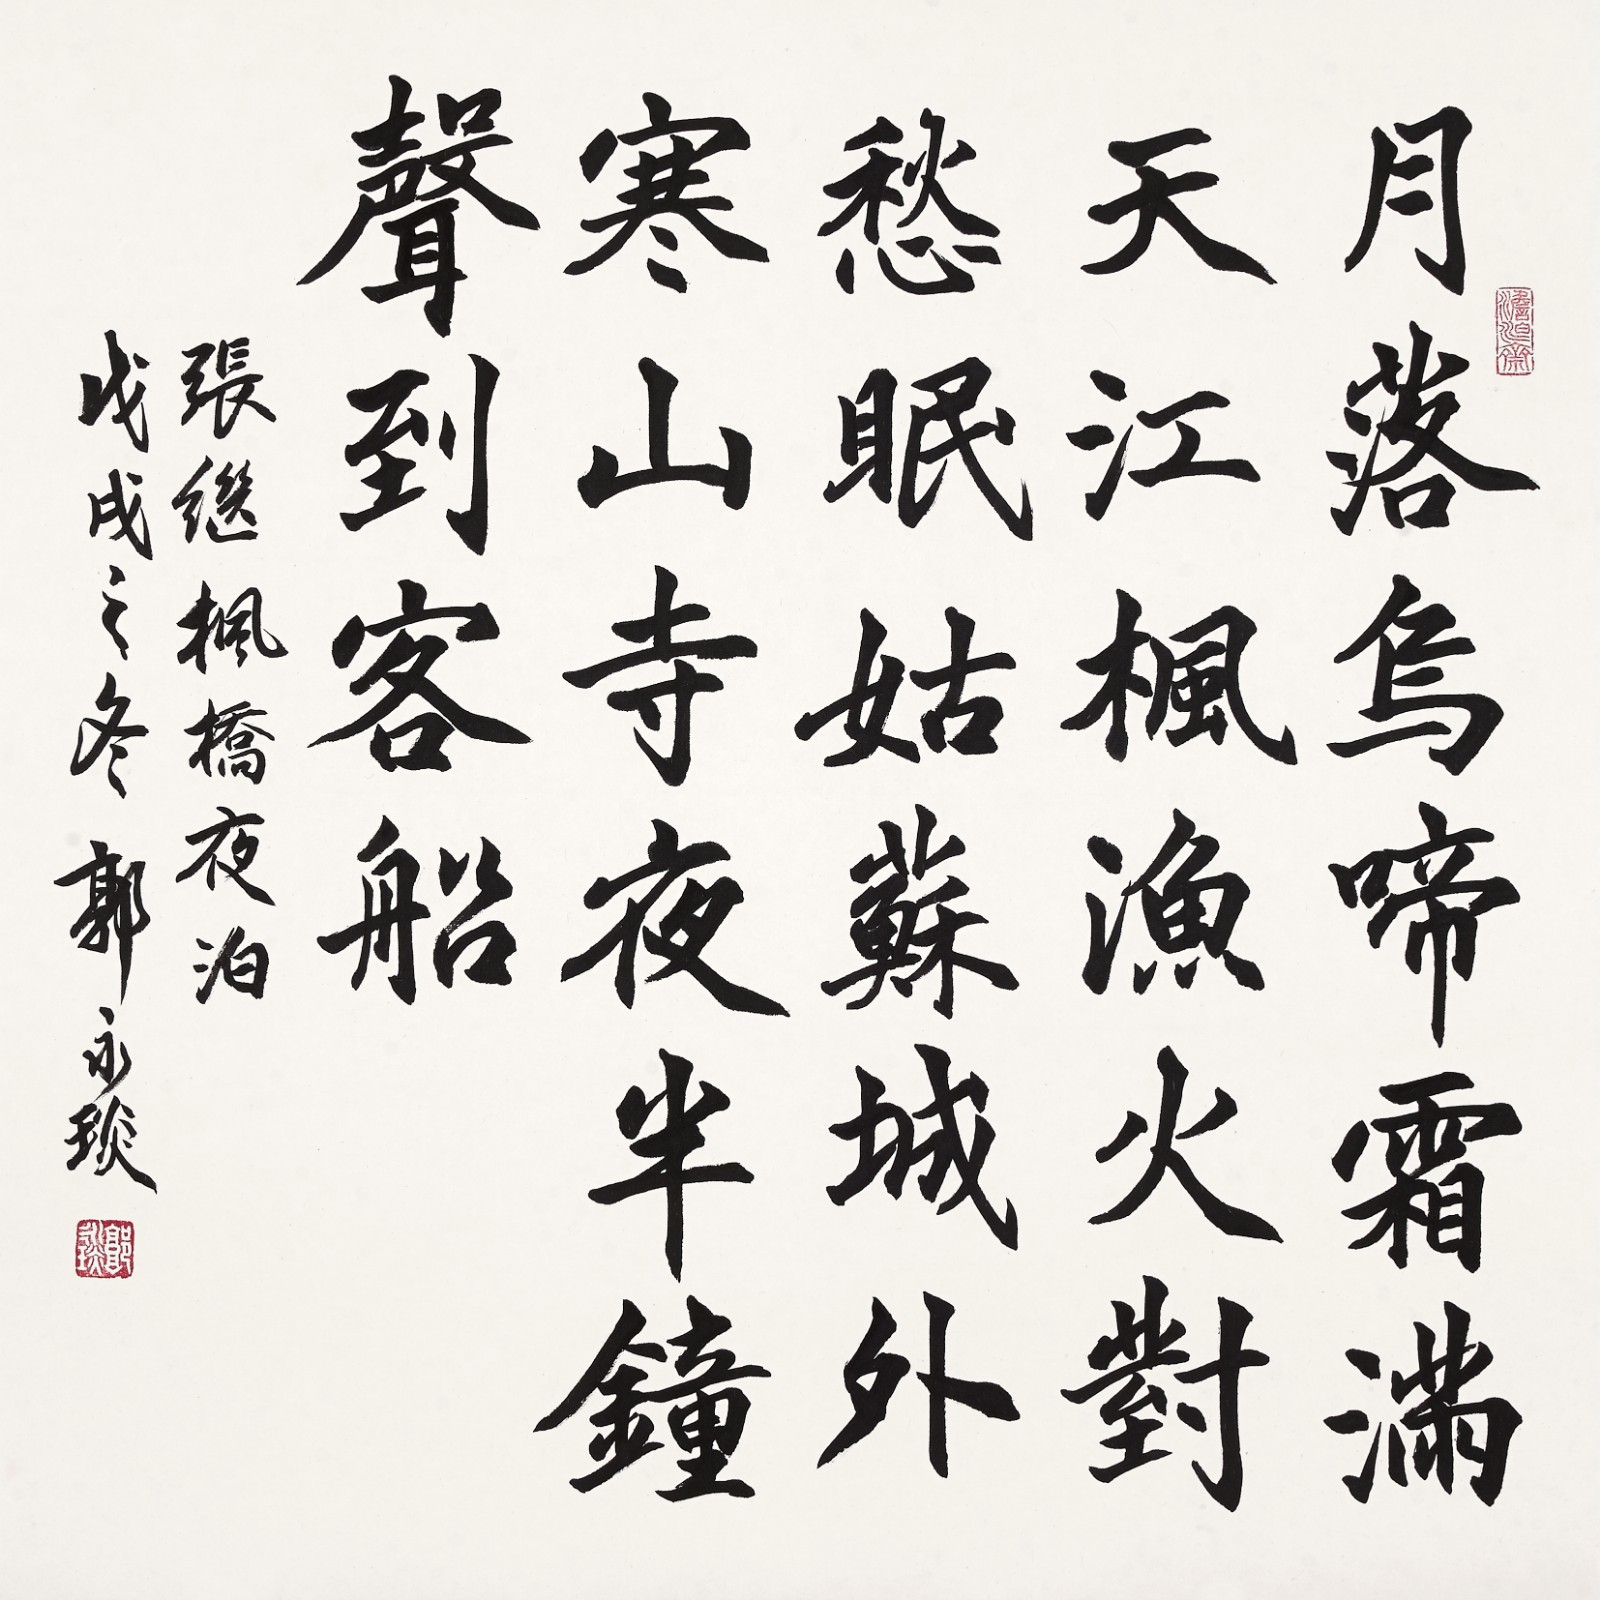 月落烏啼霜滿
天江楓漁火對
愁眠姑蘇城外
寒山寺夜半鐘
聲到客船
張繼楓橋夜泊
戊戌之冬郭永琰
郭永琰